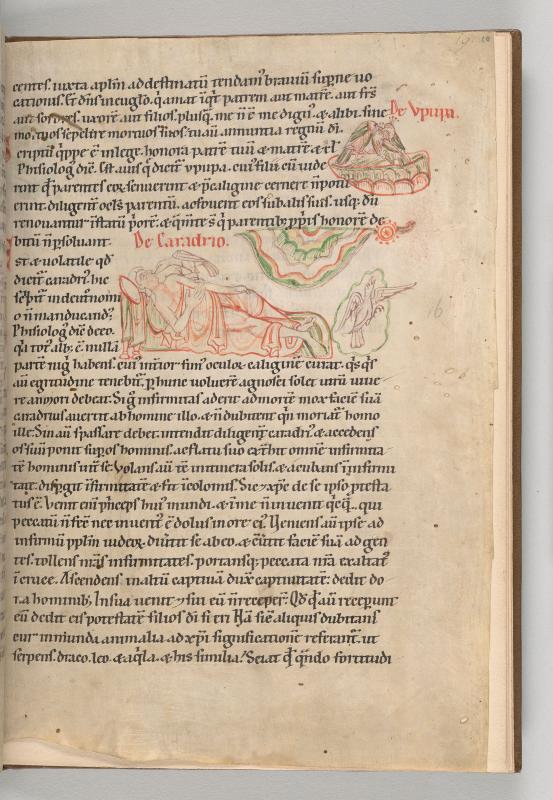 centes. iuxta aplm ad destinatū tendam' brauiū supne uo
cationis. Et dns in euglo. q amat iqt patrem aut matrē. aut frs
aut sorores. uxorē aut filios. plusq me n ē me dign'. & alibi. sine
mortuos sepelire mortuos suos. tu aū annuntia regnū di.
De Vpupa.
criptū qppe ē in lege. honora patrē tuū & matrē & rl.
Phisiolog' dic̄. Est auis q dicit' vpupa. cui' filii cū uide
rint q parentes eox senuerint & p caligine cernere n potu
erint. diligent' oclis parentū. & fouent eos sub alis suis. usq dū
renouantur in statū pore. & qmte s q parentib' pprīs honore de
bitū n psoluant.
De Caradrio.
st & uolatile qd
dicit' caradri'. hic
sept' in deut'nomi
o n manducand'.
Phisiolog' dic̄ de eo.
qa tot' alb' ē. nullā
partē nig habens. cui' int'ior fim' oculox caliginē curat. qs qs
aū egritudine tenebit. p hunc uoluerē agnosci solet utrū uiue
re an mori debeat. Si g infirmitas aderit ad mortē mox faciē suā
caradrius auertit ab homine illo. & n dubitent qn moriat' homo
ille. Sin aū
debet. intendit diligent' caradri'. & accedens
os suū ponit sup os hominis. & flatu suo
omnē infirmita
tē hominis int se. Volans aū
solis. &
infirmi
tate. dispgit infirmitatē & fit incolomis. Sic & xpc de se ipso ptesta
tus ē. Venit eni pnceps hui' mundi. & in me n inuenit qcq. qui
peccatū n fec nec inuent' ē dolus in ore ei'. Veniens aū ipse ad
infirmū pplm iudeox. diutit se ab eo. & cutit faciē suā ad gen
tes. tollens nras infirmitates. portansq peccata nra exaltat'
i cruce. Ascendens in altū captiuā dux captiuitatē. dedit do
na hominib'. In sua uenit & sui eū n recepert. Qd q aū receperunt
eū dedit eis potestatē filios di fi eri. Nā sic aliquis dubitans
cur inmunda animalia ad xpi significationē referant. ut
serpens. draco. leo. & aqla. & his similia. Sciat q qndo fortitudi
16